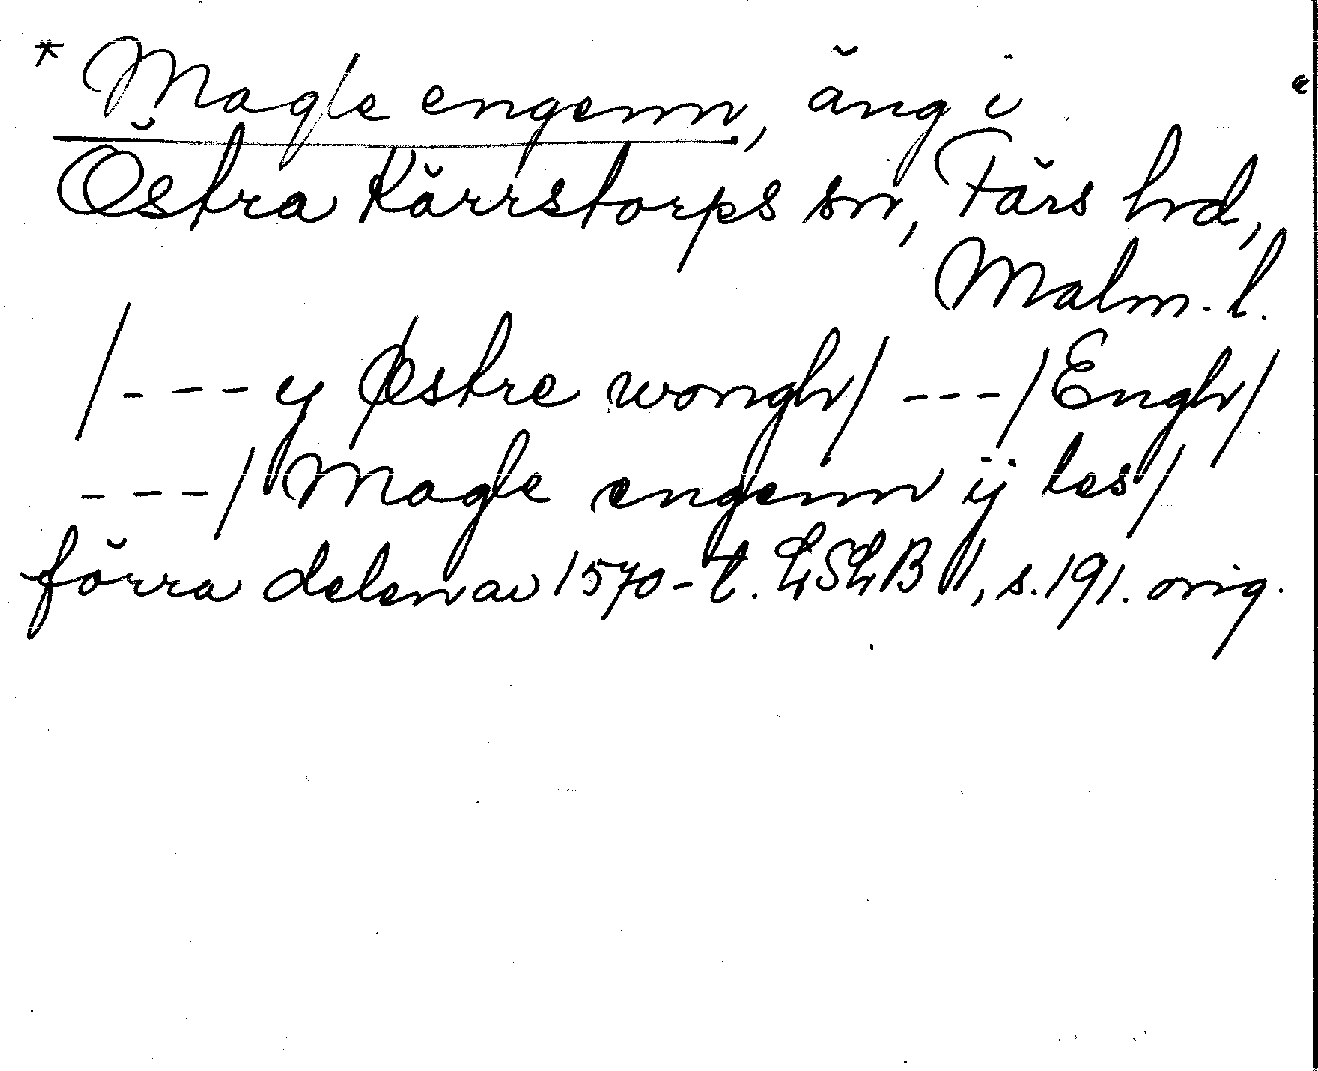 * Magle engenn, äng i
Östra Kärrstorps sn, Färs hd,
Malm. l.
/--- y Østre wongh/ ---/Engh/
---/ Magle engenn ij les/
förra delen av 1570-t. LSLB II, s. 191. orig.